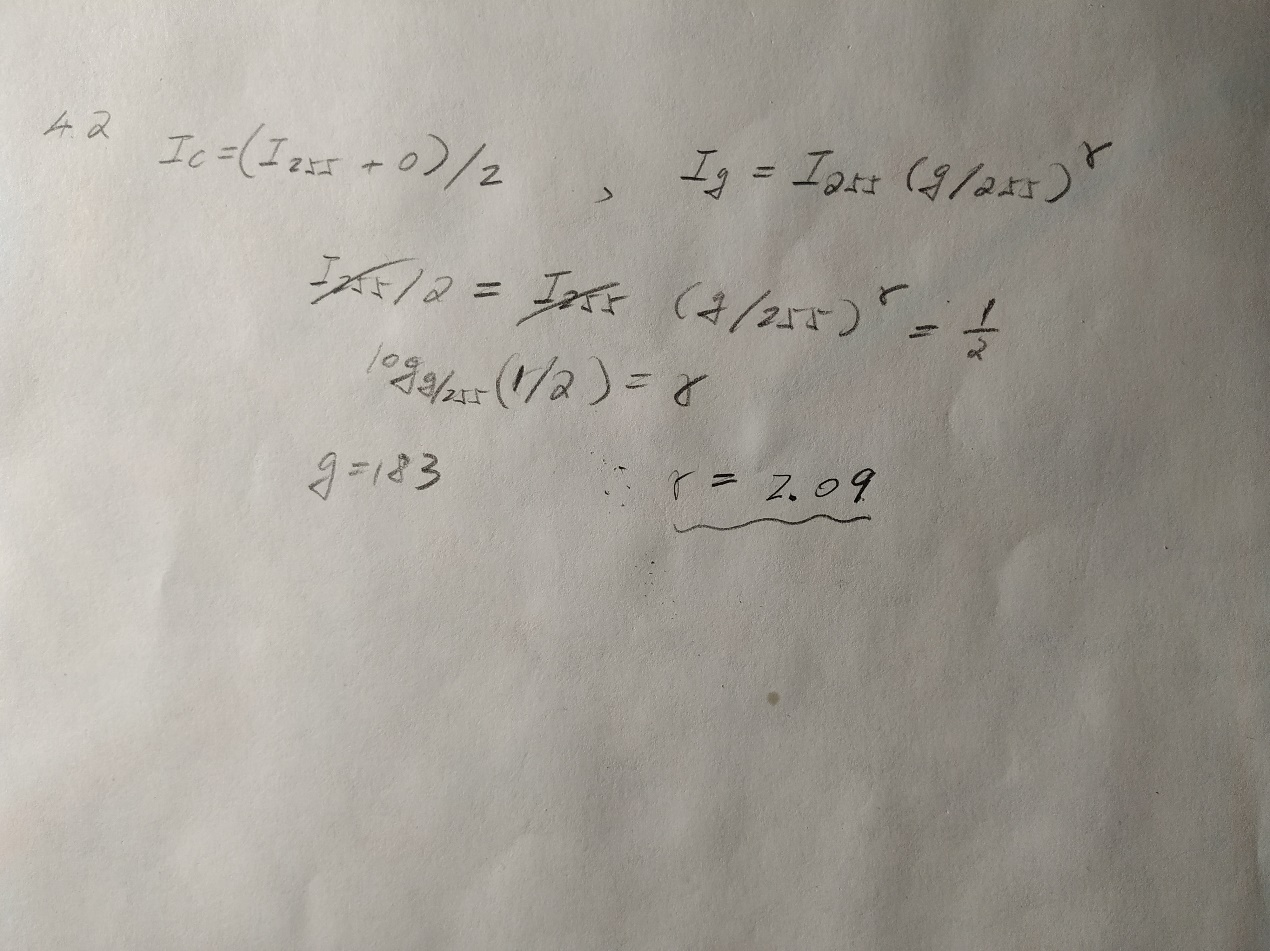 4.2 Ic=(I255 + 0)/2 , Ig = I255 (g/255)^γ
I255/2 = I255 (g/255)^γ = 1/2
log g/255 (1/2) = γ
g=183 ∴ γ = 2.09